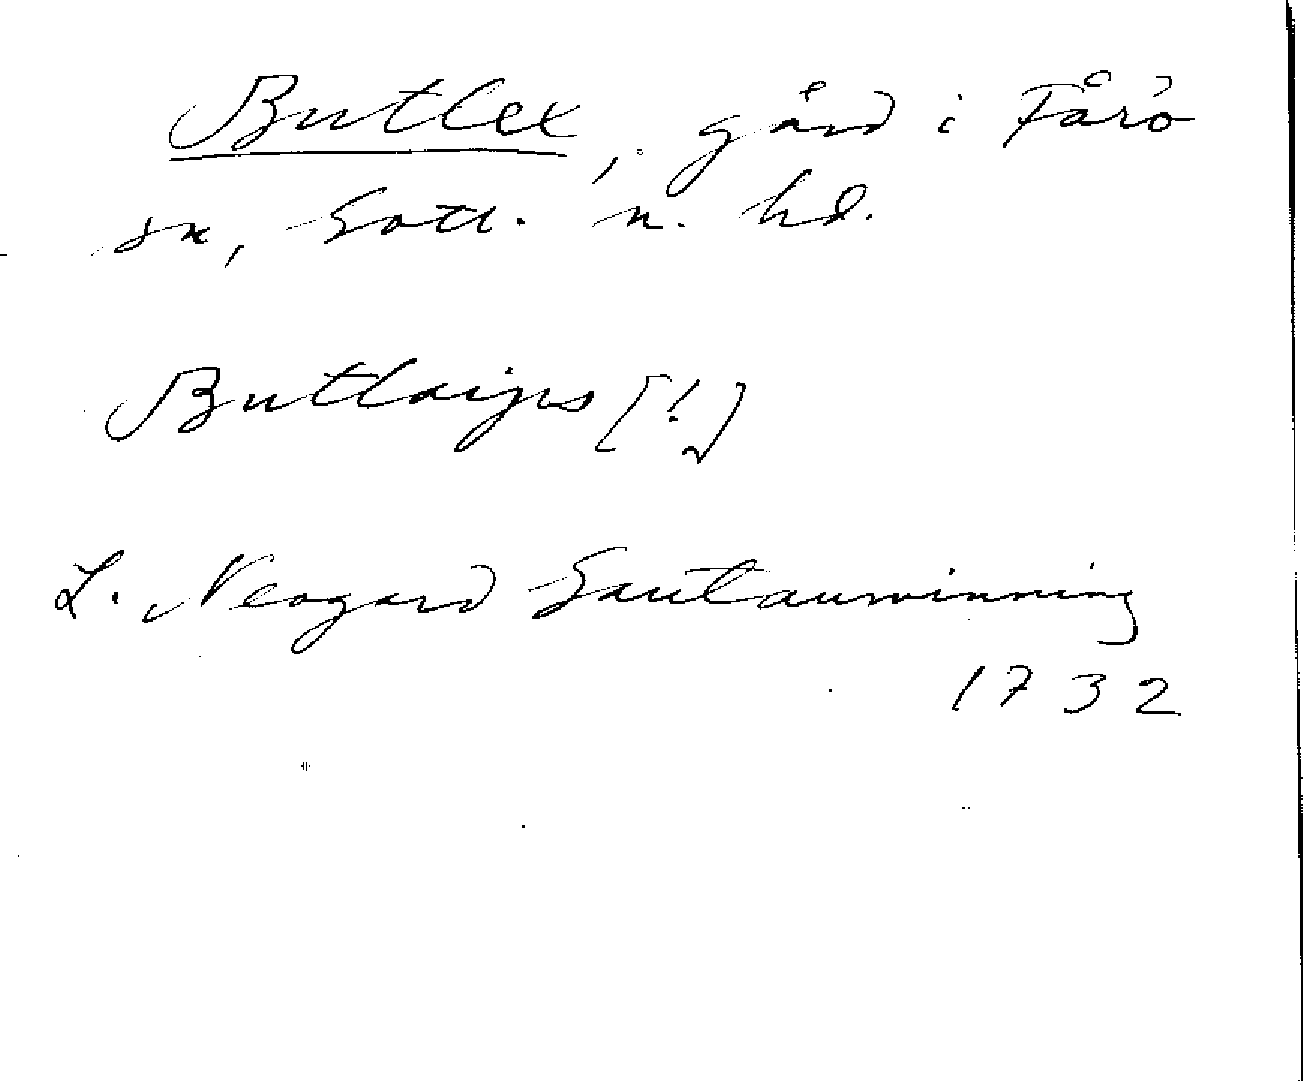 Butlex, gård i Fårö
sn, Gotl. n. hd.
Butlaijs [!]
L. Neogard Gautauminning
1732